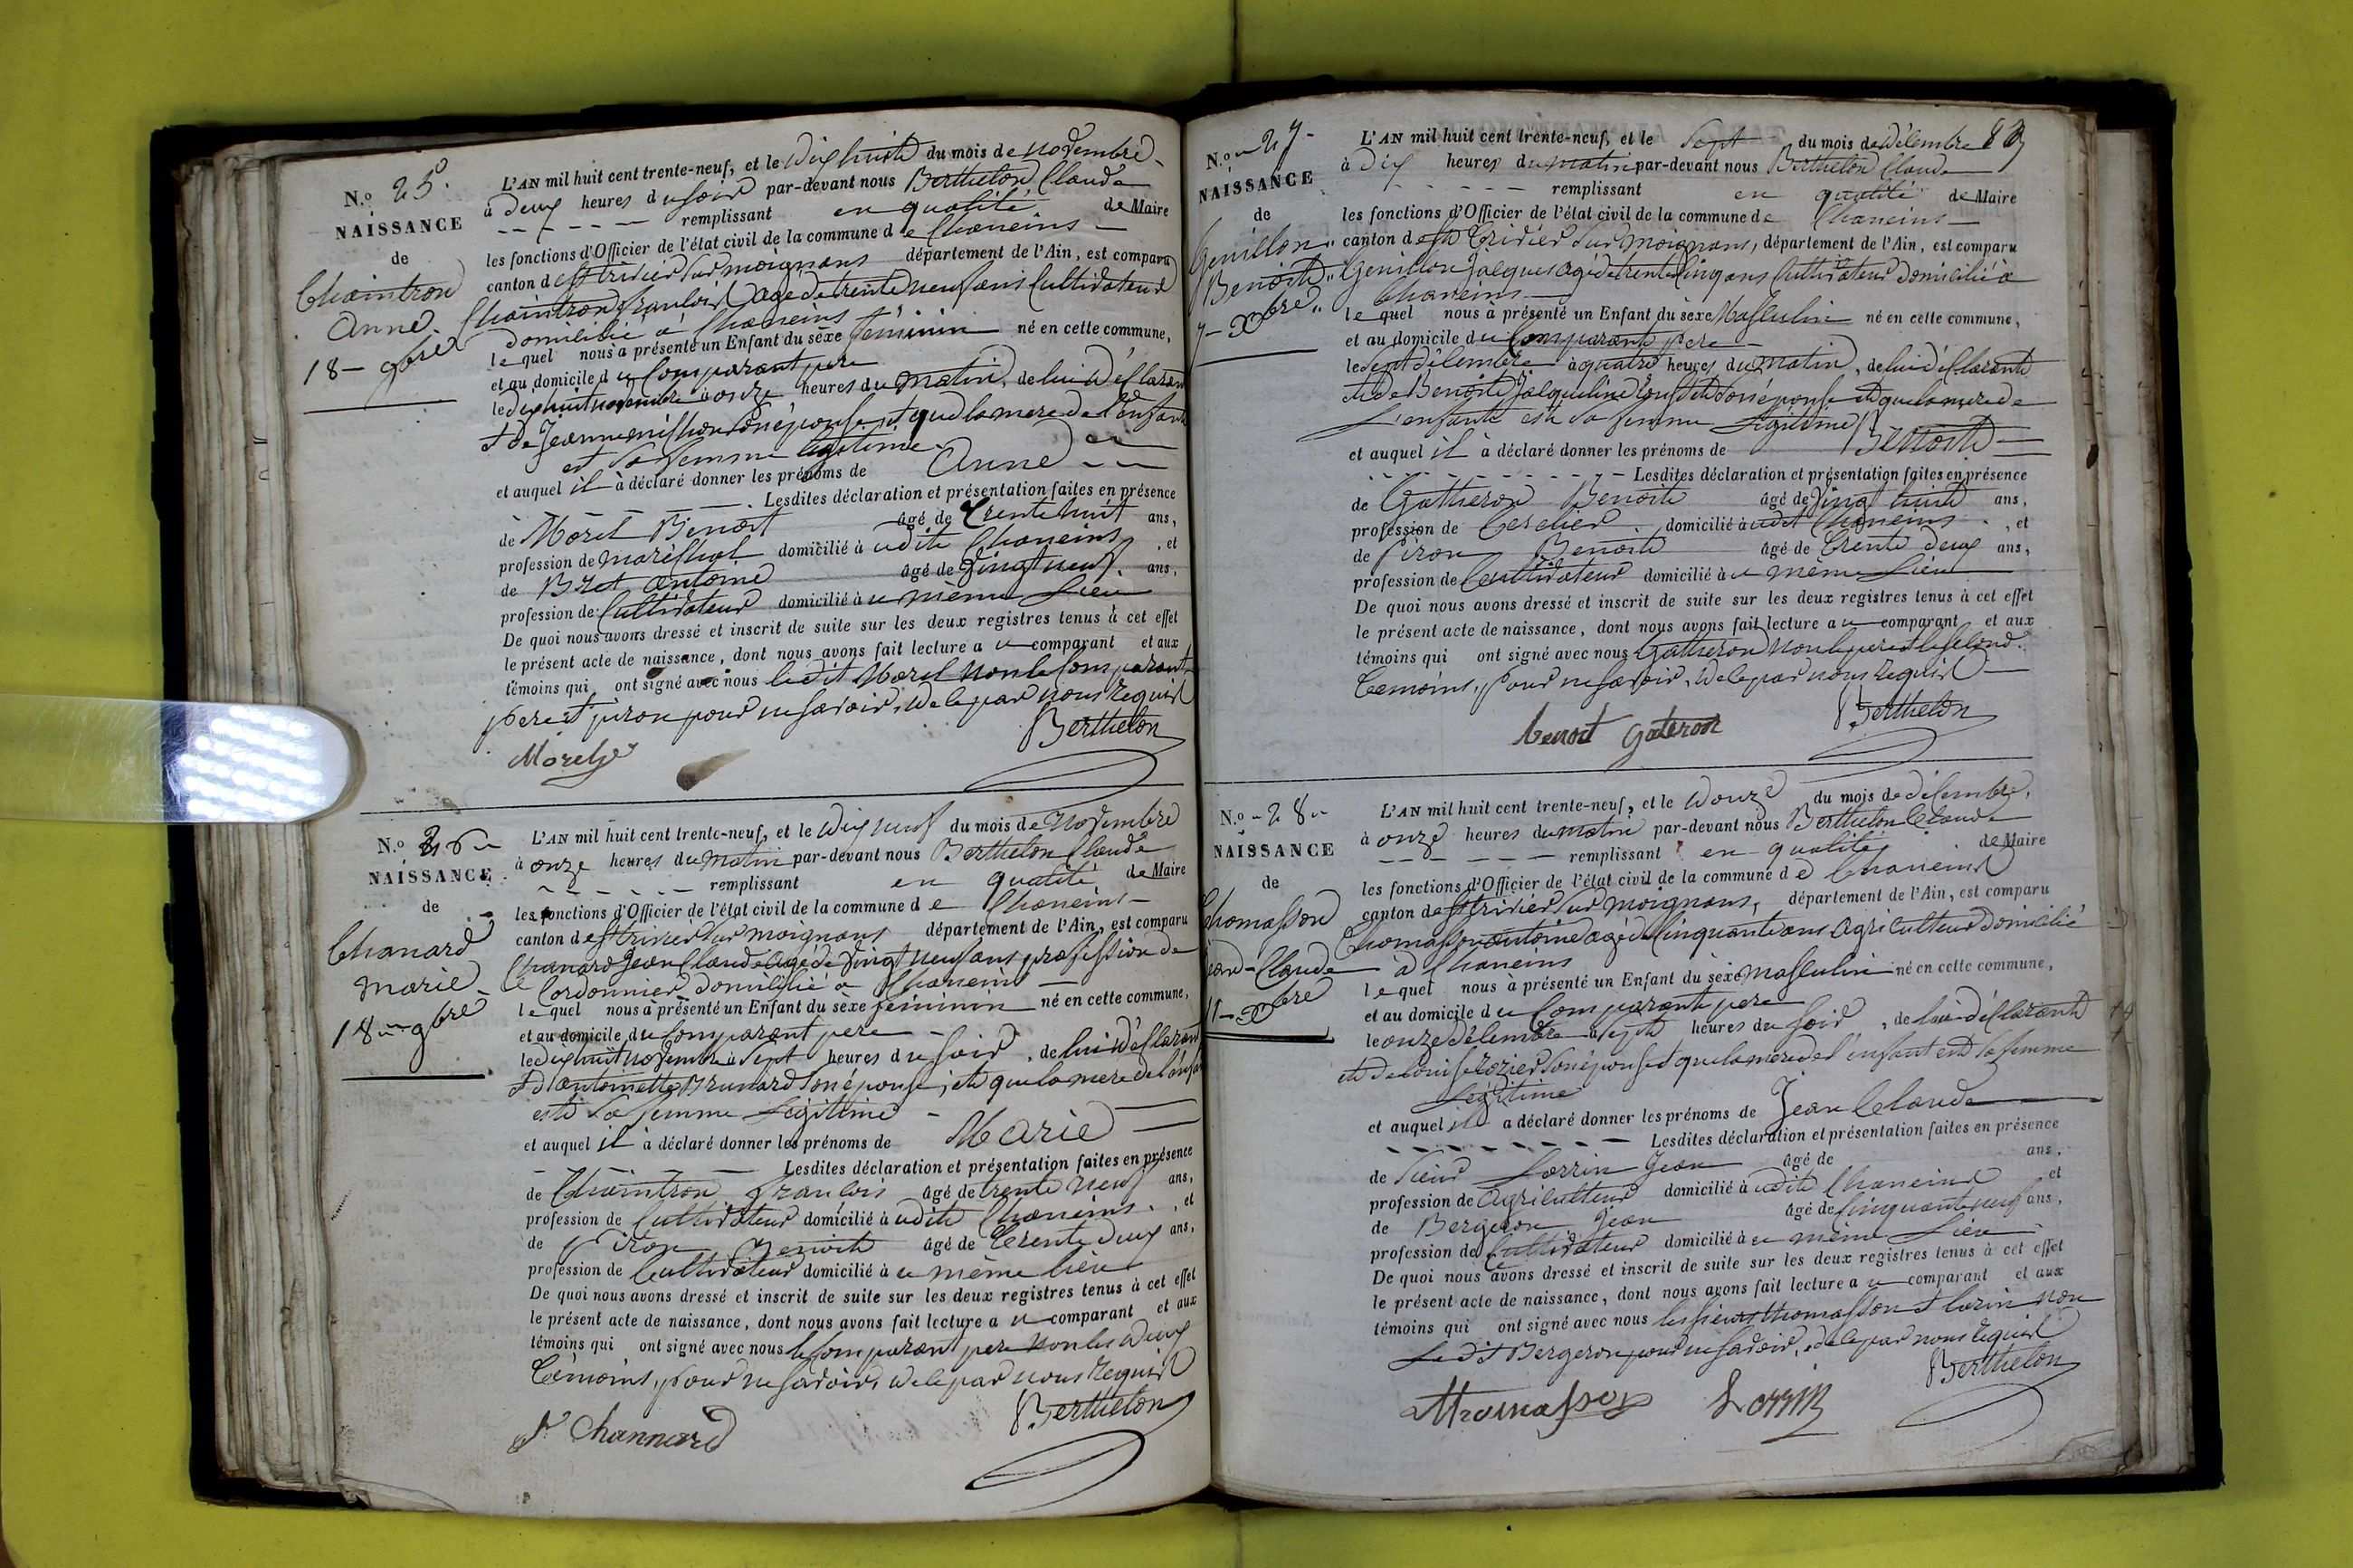 N.o 25.
NAISSANCE
de
Chaintron
Anne.
18 - 9bre
L'AN mil huit cent trente-neuf, et le dix huit du mois de novembre
à deux heures du soir par-devant nous Berthelon Claude
remplissant en qualité de Maire
les fonctions d'Officier de l'état civil de la commune de Chaneins
canton de St trivier sur moignans département de l'Ain, est comparu
Chaintron francois agé de trente neuf ans Cultivateur
domicilié à Chaneins
lequel nous à présenté un Enfant du sèxe féminin né en cette commune,
et au domicile du Comparant pere
le dix huit novembre à onze heures du matin, de lui déclarant
et de Jeanne michon son épouse et que la mere de l'enfant
est sa femme légitime
et auquel il à déclaré donner les prénoms de Anne
Lesdites déclaration et présentation faites en présence
de Morel Benoit âgé de trente huit ans,
profession de maréchal domicilié à udit Chaneins, et
de Bret antoine âgé de vingt neuf ans,
profession de Cultivateur domicilié à u même Lieu
De quoi nous avons dressé et inscrit de suite sur les deux registres tenus à cet effet
le présent acte de naissance, dont nous avons fait lecture a u comparant et aux
témoins qui ont signé avec nous ledit Morel non le Comparant
pere et piron pour ne savoir, de le par nous requis
Morel Berthelon
N.o 26
NAISSANCE
de
Chanard
Marie
18 - 9bre
L'AN mil huit cent trente-neuf, et le dix neuf du mois de Novembre
à onze heures du matin par-devant nous Berthelon Claude
remplissant en qualité de Maire
les fonctions d'Officier de l'état civil de la commune de Chaneins
canton de St trivier sur moignans département de l'Ain, est comparu
Chanard Jean Claude agé de vingt neuf ans profession de
Cordonnier domicilié a Chaneins
lequel nous à présenté un Enfant du sèxe féminin né en cette commune,
et au domicile du Comparant pere
le dix huit novembre à Sept heures du soir, de lui déclarant
et d'antoinette Brunard son épouse, et que la mere de l'enfant
est sa femme Légitime
et auquel il à déclaré donner les prénoms de Marie
Lesdites déclaration et présentation faites en présence
de Chaintron francois âgé de trente neuf ans,
profession de Cultivateur domicilié à udit Chaneins, et
de Piron Benoit âgé de trente deux ans,
profession de Cultivateur domicilié à u même lieu
De quoi nous avons dressé et inscrit de suite sur les deux registres tenus à cet effet
le présent acte de naissance, dont nous avons fait lecture a u comparant et aux
témoins qui ont signé avec nous le Comparant pere non les deux
temoins, pour ne savoir, de le par nous requis
Channard Berthelon
N.o 27
NAISSANCE
de
Genillon
Benoit
7 - Xbre
L'AN mil huit cent trente-neuf, et le Sept du mois de décembre 83
à dix heures du matin par-devant nous Berthelon Claude
remplissant en qualité de Maire
les fonctions d'Officier de l'état civil de la commune de Chaneins
canton de St Trivier sur moignans, département de l'Ain, est comparu
Genillon Jacques agé de trente Cinq ans Cultivateur domicilié à
Chaneins
lequel nous à présenté un Enfant du sèxe Masculin né en cette commune,
et au domicile du Comparant pere
le Sept décembre à quatre heures du matin, de lui déclarant
et de Benoite Jacqueline son épouse et que la mere de
L'enfant est sa femme Légitime
et auquel il à déclaré donner les prénoms de Benoit
Lesdites déclaration et présentation faites en présence
de Gatheron Benoit âgé de vingt huit ans,
profession de domicilié à udit Chaneins, et
de Piron Benoit âgé de trente deux ans,
profession de Cultivateur domicilié à u même Lieu
De quoi nous avons dressé et inscrit de suite sur les deux registres tenus à cet effet
le présent acte de naissance, dont nous avons fait lecture a u comparant et aux
témoins qui ont signé avec nous Gatheron non le pere et le second
temoins, pour ne savoir, de le par nous requis
benoit gateron Berthelon
N.o 28
NAISSANCE
de
Thomasson
Jean-Claude
11 - Xbre
L'AN mil huit cent trente-neuf, et le douze du mois de décembre,
à onze heures du matin par-devant nous Berthelon Claude
remplissant en qualité de Maire
les fonctions d'Officier de l'état civil de la commune de Chaneins
canton de St trivier sur moignans, département de l'Ain, est comparu
Thomasson antoine agé de Cinquante ans Agriculteur domicilié
à Chaneins
lequel nous à présenté un Enfant du sèxe masculin né en cette commune,
et au domicile du Comparant pere
le onze décembre à sept heures du soir, de lui déclarant
et de Louise rozier son épouse et que la mere de l'enfant est sa femme
Légitime
et auquel il a déclaré donner les prénoms de Jean Claude
Lesdites déclaration et présentation faites en présence
de Sieur Lorrin Jean âgé de ans,
profession de Agriculteur domicilié à udit Chaneins et
de Bergeron Jean âgé de Cinquante neuf ans,
profession de Cultivateur domicilié à u même Lieu
De quoi nous avons dressé et inscrit de suite sur les deux registres tenus à cet effet
le présent acte de naissance, dont nous avons fait lecture a u comparant et aux
témoins qui ont signé avec nous les sieurs thomasson et lorin non
Ledit Bergeron pour ne savoir, de le par nous requis
Thomasson Lorrin Berthelon